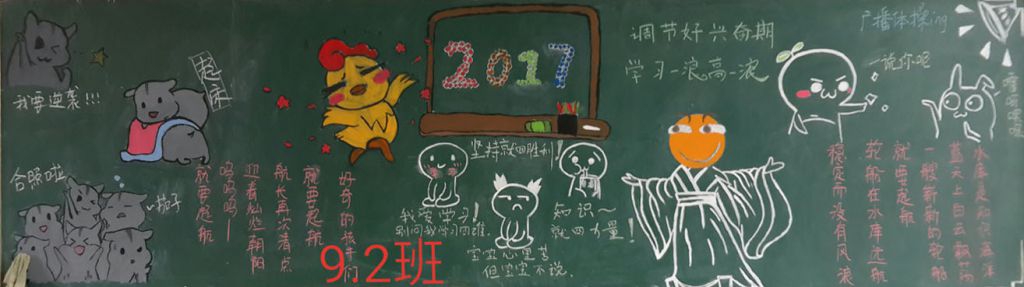 我要逆袭!!!
起床
合照啦
2017
调节好兴奋期
学习一浪高一浪
广播体操ing
一说你吧
坚持就四胜利!
我爱学习!
别问我学习四谁
宝宝心里苦
但宝宝不说.
知识~
就四力量!
好奇的孩子们
就要起航
航长再次清点
迎着灿烂朝阳
呜呜呜——
就要起航
蓝天上白云飘荡
一艘新新的轮船
就要起航
轮船在水库远航
稳定而没有风浪
9.2班